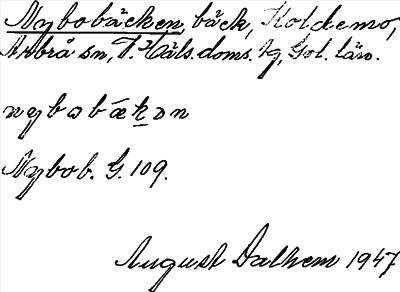 Nybobäcken, bäck, Koldemo,
Arbrå sn, V. Häls. doms. tg, Gol. län.
nybobäkən
Nybob. G. 109.
August Dalhem 1947